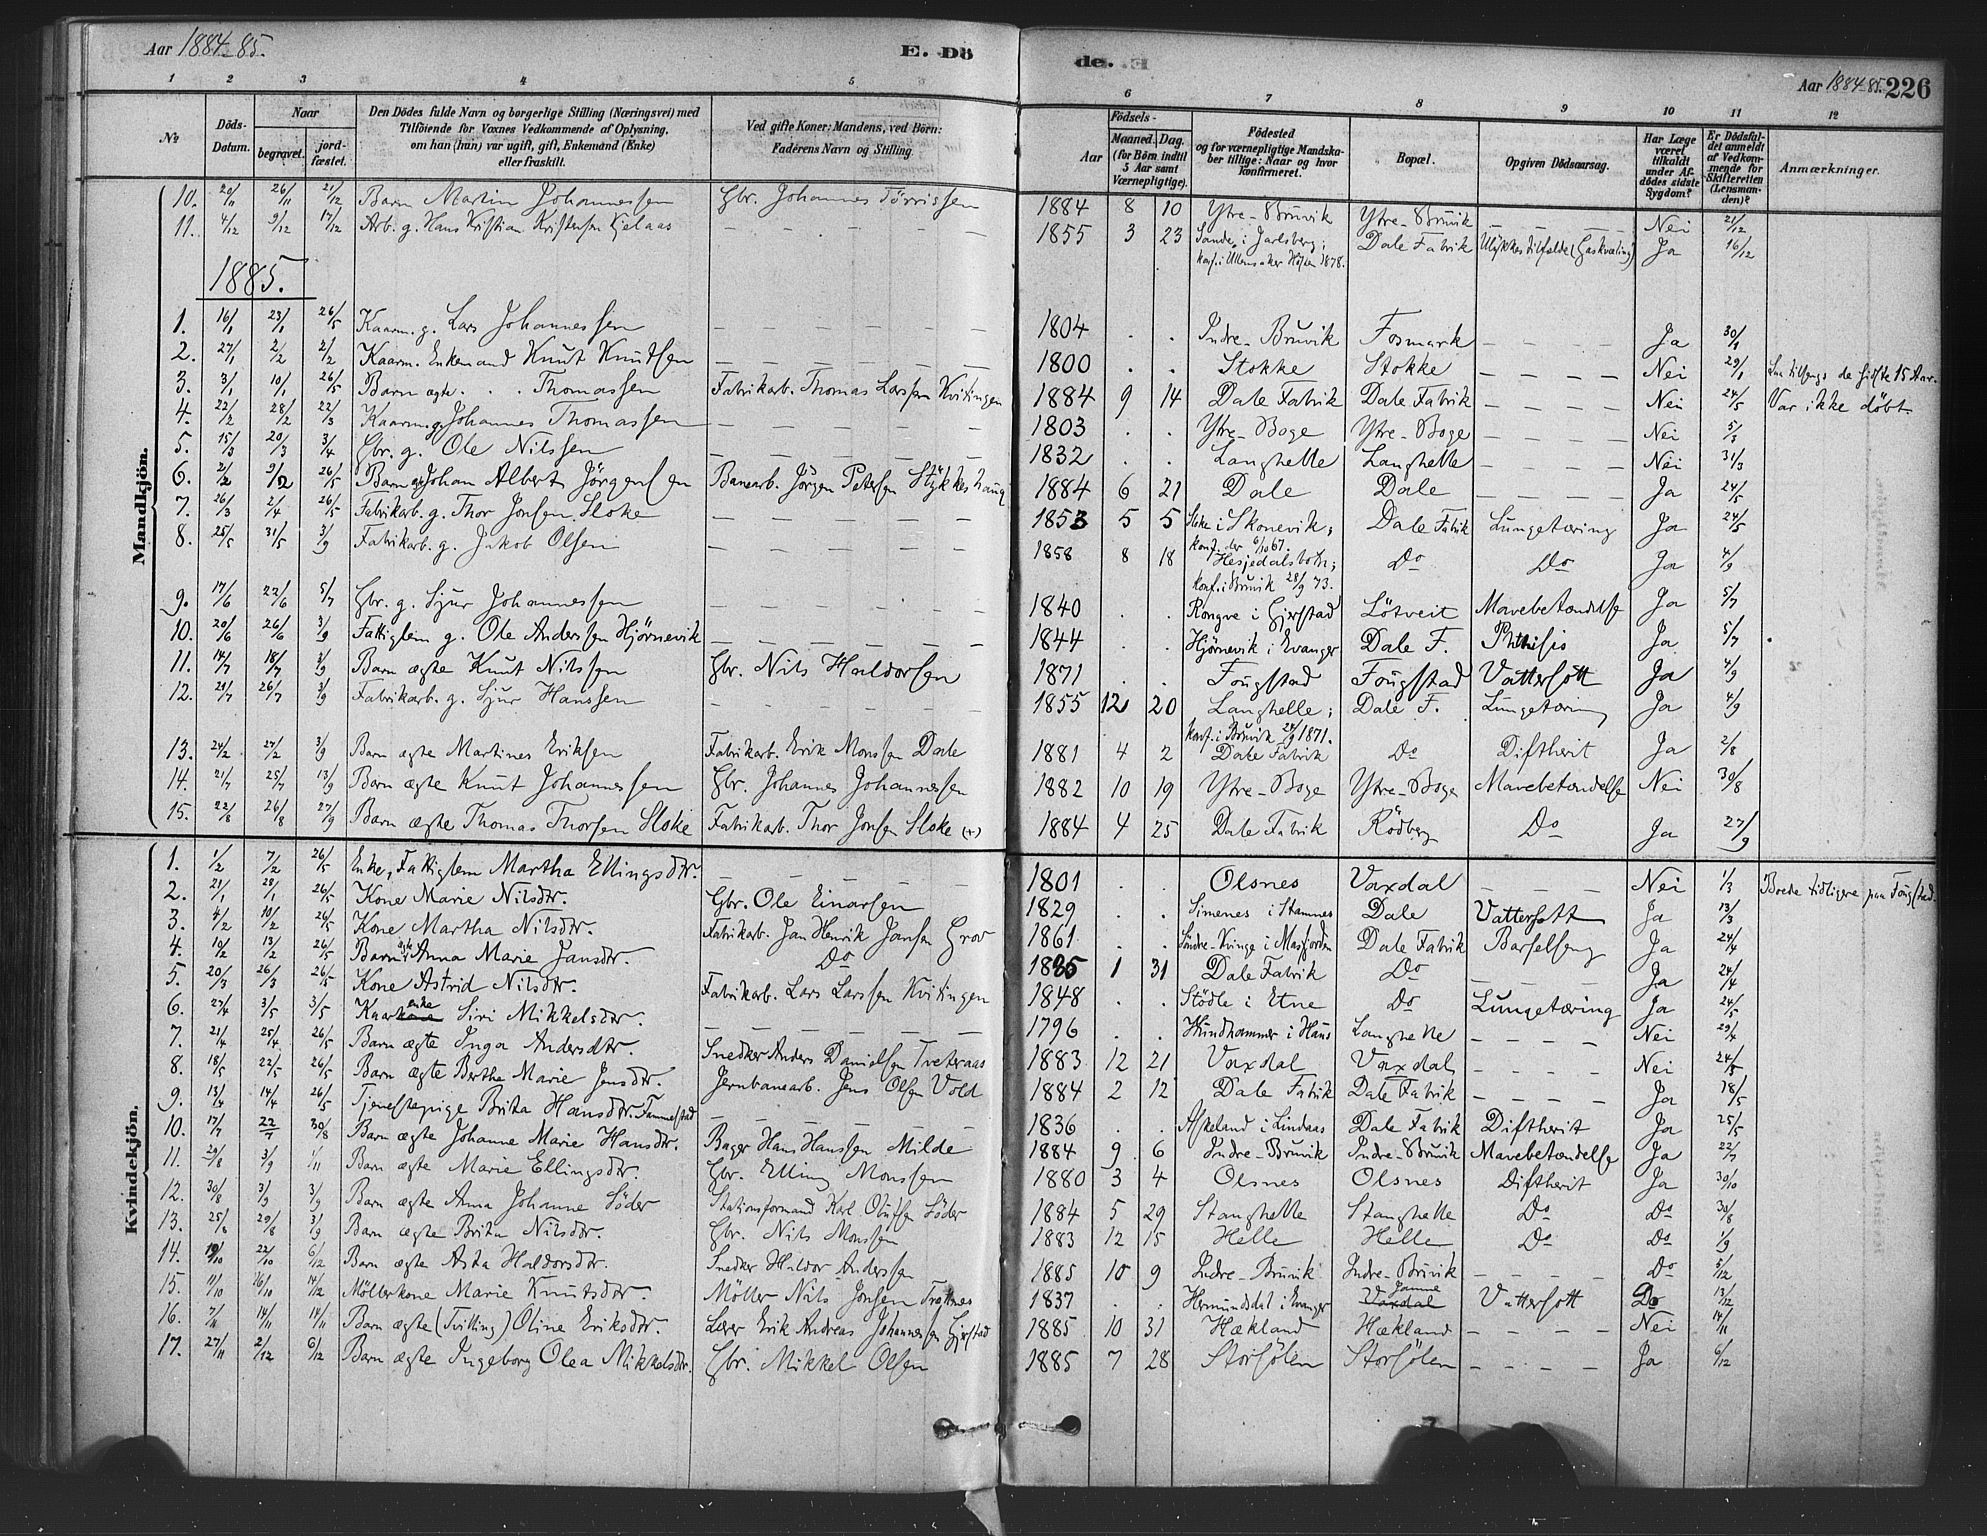 Aar 1884-85. E. Dö de. Aar 1884-85. 226
1 2 3 4 5 6 7 8 9 10 11 12
№ Döds-Datum. Naar begravet. jord-fæstet. Den Dödes fulde Navn og borgerlige Stilling (Næringsvei) med Tilföiende for Voxnes Vedkommende af Oplysning, om han (hun) var ugift, gift, Enkemand (Enke) eller fraskilt. Ved gifte Koner: Mandens, ved Börn: Faderens Navn og Stilling. Födsels- Aar Maaned. Dag. (for Börn indtil 5 Aar samt Værnepligtige). Födested og for værnepligtige Mandska-ber tillige: Naar og hvor konfirmeret. Bopæl. Opgiven Dödsaarsag. Har Læge været tilkaldt under Af-dödes sidste Sygdom? Er Dödsfal-det anmeldt af Vedkom-mende for Skifteretten (Lensman-den)? Anmærkninger.
Mandkjön.
10. 20/11 26/11 21/12 Barn Martin Johannessen Gbr. Johannes Törrissen 1884 8 10 Ytre-Bruvik Ytre-Bruvik – – – – Nei 21/12
11. 4/12 9/12 17/12 Arb. g. Hans Kristian Kristensen Kjelaas – – – – – 1855 3 23 Sande i Jarlsberg; Dale Fabrik Ulykkestilfælde (Gaskvæling) Ja 16/12
konf. i Ullensaker Hösten 1878.
1885.
1. 16/1 23/1 26/5 Kaarm. g. Lars Johannessen – – – – – 1804 . . Indre-Bruvik Fosmark – – – – Ja 30/1
2. 27/1 2/2 2/2 Kaarm. Enkemand Knut Knutsen – – – – – 1800 . . Stokke Stokke – – – – Nei 29/1 de sidste 15 Aar.
3. 3/1 10/1 26/5 Barn ægte . . Thomassen Fabrikarb. Thomas Larssen Kvitingen 1884 9 14 Dale Fabrik Dale Fabrik – – – – Nei 24/5 Var ikke döbt.
4. 22/2 28/2 22/3 Kaarm. g. Johannes Thomassen – – – – – 1803 . . Ytre-Boge Ytre-Boge – – – – Nei 5/3
5. 15/3 20/3 3/4 Gbr. g. Ole Nilssen – – – – – 1832 . . Langhelle Langhelle – – – – Nei 31/3
6. 2/2 9/2 26/5 Barn Johan Albert Jörgensen Banearb. Jörgen Petersen Stykkeshaug 1884 6 21 Dale Dale – – – – Ja 24/5
7. 26/3 2/4 26/5 Fabrikarb. g. Thor Jonsen Sloke – – – – – 1853 5 5 Sloke i Skonevik; Dale Fabrik Lungetæring Ja 24/5
konf. der 6/10 67.
8. 25/5 31/5 3/9 Fabrikarb. g. Jakob Olsen – – – – – 1858 8 18 Hesjedalsbotn; Do Do Ja 4/9
konf. i Bruvik 28/9 73.
9. 17/6 22/6 5/7 Gbr. g. Sjur Johannessen – – – – – 1840 . . Rongve i Gjerstad Lötveit Mavebetændelse Ja 5/7
10. 20/6 26/6 3/9 Fattiglem g. Ole Anderssen Hjörnevik – – – – – 1844 . . Hjörnevik i Evanger Dale F. Phthisis Ja 5/7
11. 14/7 18/7 3/9 Barn ægte Knut Nilssen Gbr. Nils Haldorsen 1871 . . Fougstad Fougstad Vattersott Ja 4/9
12. 21/7 26/7 3/9 Fabrikarb. g. Sjur Hanssen – – – – – 1855 12 20 Langhelle; Dale F. Lungetæring Ja 4/9
konf. i Bruvik 24/9 1871.
13. 24/2 27/2 3/9 Barn ægte Martines Eriksen Fabrikarb. Erik Monssen Dale 1881 4 2 Dale Fabrik Do Diftherit Ja 2/8
14. 21/7 25/7 13/9 Barn ægte Knut Johannessen Gbr. Johannes Johannessen 1882 10 19 Ytre-Boge Ytre-Boge Mavebetændelse Nei 30/8
15. 22/8 26/8 27/9 Barn ægte Thomas Thorsen Sloke Fabrikarb. Thor Jonsen Sloke (+) 1884 4 25 Dale Fabrik Rödberg Do Ja 27/9
Kvindekjön.
1. 1/2 7/2 26/5 Enke, Fattiglem Martha Ellingsdtr. – – – – – 1801 . . Olsnes Vaxdal – – – Nei 1/3 Boede tidligere paa Fougstad.
2. 21/1 28/1 26/5 Kone Marie Nilsdtr. Gbr. Ole Einarsen 1829 . . Simenes i Stamnes Dale Vattersott Ja 13/3
3. 4/2 10/2 26/5 Kone Martha Nilsdtr. Fabrikarb. Jan Henrik Jansen Grov 1861 . . Söndre-Kvinge i Masfjorden Dale Fabrik Barselseng Ja 24/4
4. 10/2 13/2 26/5 Barn ægte Anna Marie Jansdtr. Do 1885 1 31 Dale Fabrik Do – – – – Ja 24/4
5. 20/3 26/3 26/5 Kone Astrid Nilsdtr. Fabrikarb. Lars Larssen Kvitingen 1848 . . Stödle i Etne Do Lungetæring Ja 24/5
6. 27/4 3/5 3/5 Kaarkone enke Siri Mikkelsdtr. – – – – – 1796 . . Hundhammer i Haus Langhelle – – – – Nei 29/4
7. 21/4 25/4 26/5 Barn ægte Inga Andersdtr. Snedker Anders Danielsen Tveteraas 1883 12 21 Vaxdal Vaxdal – – – – Nei 24/5
8. 18/5 22/5 26/5 Barn ægte Berthe Marie Jensdtr. Jernbanearb. Jens Olsen Vold 1884 2 12 Dale Fabrik Dale Fabrik – – – – Ja 18/5
9. 13/4 14/4 26/5 Tjenestepige Brita Hansdtr. Tammelstad – – 1836 . . Askeland i Lindaas Dale Fabrik Diftherit Ja 25/5
10. 17/7 22/7 30/8 Barn ægte Johanne Marie Hansdtr. Bager Hans Hanssen Milde 1884 9 6 Indre-Bruvik Indre-Bruvik Mavebetændelse Ja 22/7
11. 29/8 3/9 1/11 Barn ægte Marie Ellingsdtr. Gbr. Elling Monssen 1880 3 4 Olsnes Olsnes Diftherit Ja 30/10
12. 30/8 3/9 3/9 Barn ægte Anna Johanne Söder Stationsformand Karl Olufsen Söder 1884 5 29 Stanghelle Stanghelle Do Do 30/8
13. 25/8 29/8 3/9 Barn ægte Brita Nilsdtr. Gbr. Nils Monssen 1883 12 15 Helle Helle Do Do 1/9
14. 19/10 22/10 6/12 Barn ægte Asta Haldorsdtr. Snedker Haldor Anderssen 1885 10 9 Indre-Bruvik Indre-Bruvik – – – – Do 5/12
15. 11/10 16/10 14/12 Möllerkone Marie Knutsdtr. Möller Nils Jonsen Trættnes 1837 . . Hermundsdal i Evanger Vaxdal Jamne Vattersott Do 13/12
16. 7/11 14/11 14/11 Barn ægte (Tvilling) Oline Eriksdtr. Lærer Erik Andreas Johannessen Gjerstad 1885 10 31 Hækland Hækland – – – – Nei 14/11
17. 27/11 2/12 6/12 Barn ægte Ingeborg Olea Mikkelsdtr. Gbr. Mikkel Olsen 1885 7 28 Storsölen Storsölen – – – – Ja 6/12